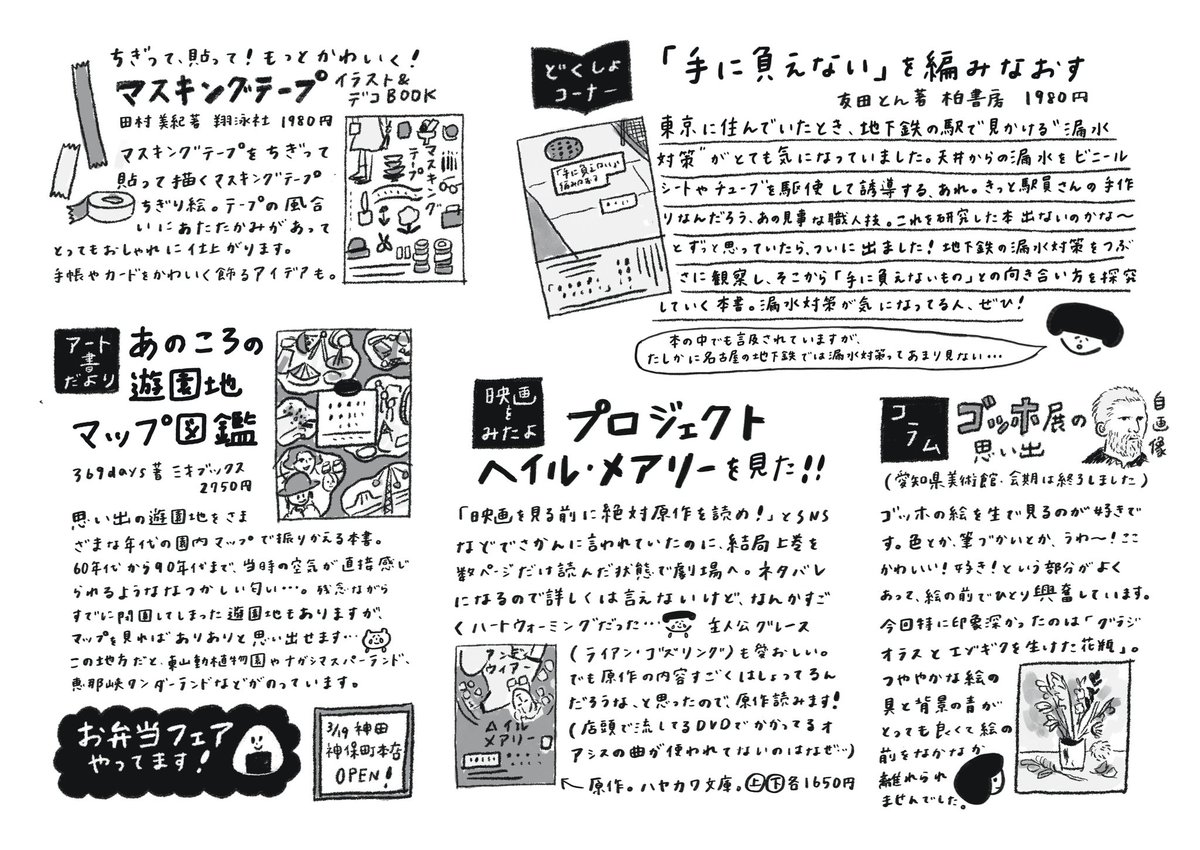 ちぎって、貼って！もっとかわいく！
マスキングテープ イラスト&
デコBOOK
田村美紀著 翔泳社 1980円
マスキングテープをちぎって
貼って描くマスキングテープ
ちぎり絵。テープの風合
いにあたたかみがあって
とってもおしゃれに仕上がります。
手帳やカードをかわいく飾るアイデアも。
マスキング
テープ
どくしょ
コーナー
「手に負えない」を編みなおす
友田とん著 柏書房 1980円
東京に住んでいたとき、地下鉄の駅で見かける"漏水
対策"がとても気になっていました。天井からの漏水をビニール
シートやチューブを駆使して誘導する、あれ。きっと駅員さんの手作
りなんだろう、あの見事な職人技。これを研究した本出ないのかな〜
とずっと思っていたら、ついに出ました！地下鉄の漏水対策をつぶ
さに観察し、そこから「手に負えないもの」との向き合い方を探究
していく本書。漏水対策が気になってる人、ぜひ！
「手に負えない」
編みなおす
本の中でも言及されていますが、
たしかに名古屋の地下鉄では漏水対策ってあまり見ない…
アート
書
だより
あのころの
遊園地
マップ図鑑
369days著 三才ブックス
2750円
思い出の遊園地をさま
ざまな年代の園内マップで振りかえる本書。
60年代から90年代まで、当時の空気が直接感じ
られるようななつかしい匂い…。残念ながら
すでに閉園してしまった遊園地もありますが、
マップを見ればありありと思い出せます…
この地方だと、東山動植物園やナガシマスパーランド、
恵那峡ワンダーランドなどがのっています。
お弁当フェア
やってます！
3/19 神田
神保町本店
OPEN！
映画
を
みたよ
プロジェクト
ヘイル・メアリーを見た!!
「映画を見る前に絶対原作を読め！」とSNS
などでさかんに言われていたのに、結局上巻を
数ページだけ読んだ状態で劇場へ。ネタバレ
になるので詳しくは言えないけど、なんかすご
くハートウォーミングだった… 主人公グレース
(ライアン・ゴズリング)も愛おしい。
でも原作の内容すごくはしょってるん
だろうな、と思ったので、原作読みます！
(店頭で流してるDVDでかかってるオ
アシスの曲が使われてないのはなぜ…)
← 原作。ハヤカワ文庫。上下各1650円
アンディ
ウィアー
ヘイル
メアリー
コラム
ゴッホ展の
思い出
自画像
(愛知県美術館・会期は終了しました)
ゴッホの絵を生で見るのが好きで
す。色とか、筆づかいとか、うわ〜！ここ
かわいい！好き！という部分がよく
あって、絵の前でひとり興奮しています。
今回特に印象深かったのは「グラジ
オラスとエゾギクを生けた花瓶」。
つややかな絵の
具と背景の青が
とっても良くて絵の
前をなかなか
離れられ
ませんでした。